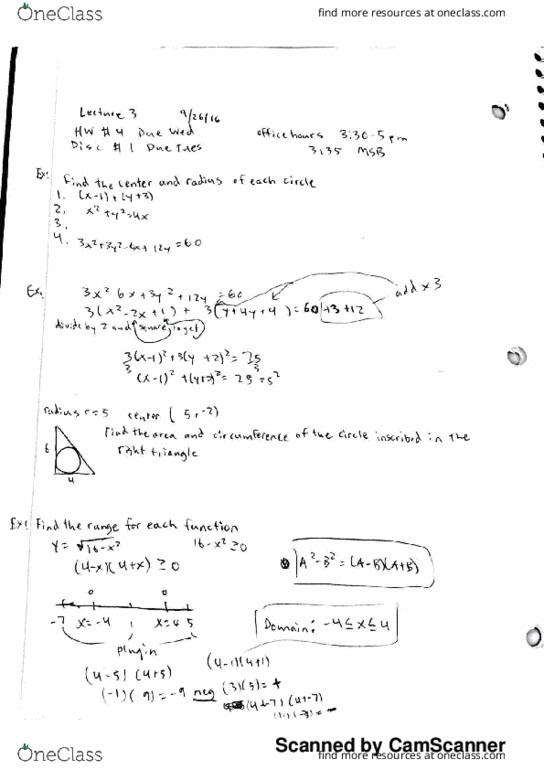 OneClass
find more resources at oneclass.com
Lecture 3 9/26/16
HW #4 Due Wed office hours 3:30-5pm
Disc #1 Due Tues 3135 MSB
Ex: Find the center and radius of each circle
1. (x-1)+(y+3)
2. x²+y²=4x
3.
4. 3x²+3y²-6x+12y=60
Ex. 3x² 6x+3y²+12y=60
3(x²-2x+1) + 3(y+4y+4)=60+3+12 add x3
divide by 2 and square to get
3(x-1)²+3(y+2)²=75
3 3
(x-1)²+(y+2)²=25=5²
radius r=5 center (5,-2)
Find the area and circumference of the circle inscribed in the
right triangle
6
4
Ex: Find the range for each function
y=√16-x² 16-x²≥0
(4-x)(4+x)≥0 A²-B²=(A-B)(A+B)
0 0
-7 x=-4 x=4 5 Domain: -4≤x≤4
plug in
(4-5)(4+5) (4-1)(4+1)
(-1)(9)=-9 neg (3)(5)=+
(4+7)(4-7)
OneClass
Scanned by CamScanner
find more resources at oneclass.com